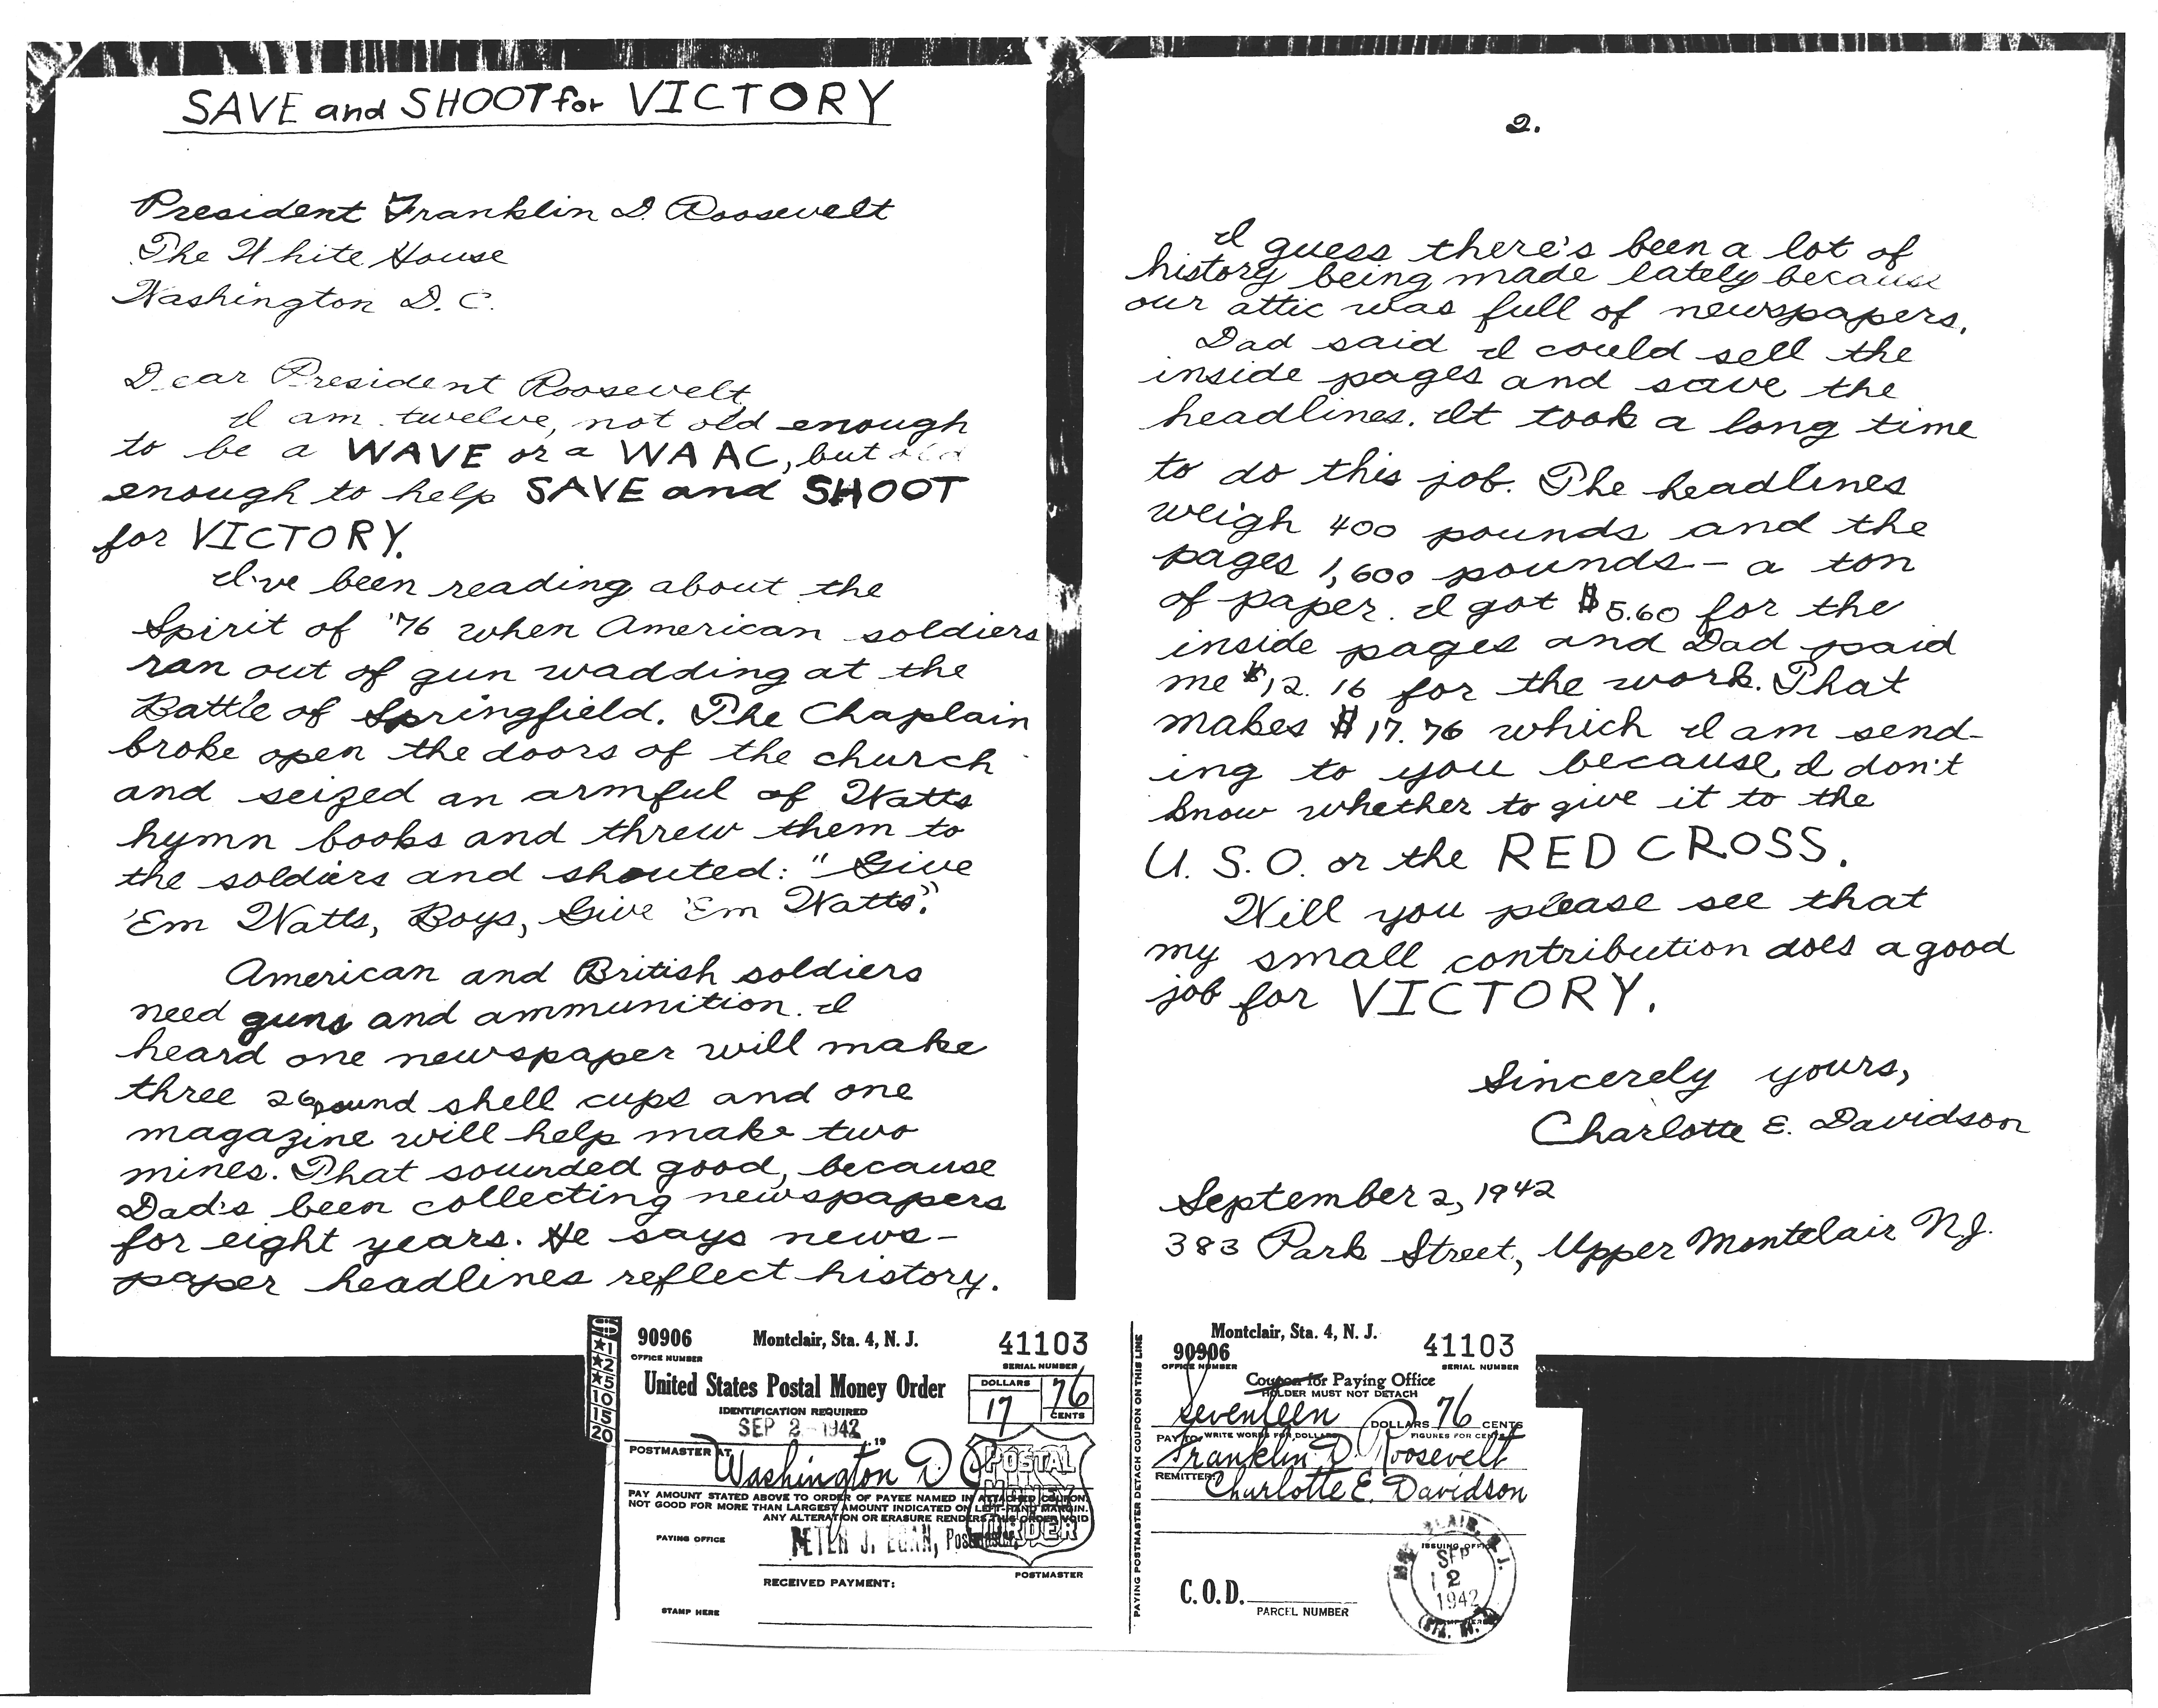 SAVE and SHOOT for VICTORY
President Franklin D. Roosevelt
The White House
Washington D.C.
Dear President Roosevelt
I am twelve, not old enough
to be a WAVE or a WAAC, but old
enough to help SAVE and SHOOT
for VICTORY.
I've been reading about the
Spirit of '76 when American soldiers
ran out of gun wadding at the
Battle of Springfield. The Chaplain
broke open the doors of the church
and seized an armful of Watts
hymn books and threw them to
the soldiers and shouted: "Give
'Em Watts, Boys, Give 'Em Watts".
American and British soldiers
need guns and ammunition. I
heard one newspaper will make
three 26 pound shell cups and one
magazine will help make two
mines. That sounded good, because
Dad's been collecting newspapers
for eight years. He says news-
paper headlines reflect history.
2.
I guess there's been a lot of
history being made lately because
our attic was full of newspapers.
Dad said I could sell the
inside pages and save the
headlines. It took a long time
to do this job. The headlines
weigh 400 pounds and the
pages 1,600 pounds - a ton
of paper. I got $5.60 for the
inside pages and Dad paid
me $12.16 for the work. That
makes $17.76 which I am send-
ing to you because I don't
know whether to give it to the
U.S.O. or the RED CROSS.
Will you please see that
my small contribution does a good
job for VICTORY.
Sincerely yours,
Charlotte E. Davidson
September 2, 1942
383 Park Street, Upper Montclair N.J.
$
★1
★2
★5
10
15
20
90906 Montclair, Sta. 4, N. J. 41103
OFFICE NUMBER SERIAL NUMBER
United States Postal Money Order
DOLLARS 17 76 CENTS
IDENTIFICATION REQUIRED
SEP 2 - 1942 19
POSTMASTER AT Washington D C
POSTAL MONEY ORDER
PAY AMOUNT STATED ABOVE TO ORDER OF PAYEE NAMED IN ATTACHED COUPON.
NOT GOOD FOR MORE THAN LARGEST AMOUNT INDICATED ON LEFT-HAND MARGIN.
ANY ALTERATION OR ERASURE RENDERS THIS ORDER VOID
PAYING OFFICE PETER J. EGAN, Postmaster
POSTMASTER
RECEIVED PAYMENT:
STAMP HERE
PAYING POSTMASTER DETACH COUPON ON THIS LINE
Montclair, Sta. 4, N. J.
90906 41103
OFFICE NUMBER SERIAL NUMBER
Coupon for Paying Office
HOLDER MUST NOT DETACH
seventeen DOLLARS 76 CENTS
PAY TO WRITE WORDS FOR DOLLARS FIGURES FOR CENTS
Franklin D. Roosevelt
REMITTER: Charlotte E. Davidson
ISSUING OFFICE
SEP
2
1942
C.O.D.
PARCEL NUMBER